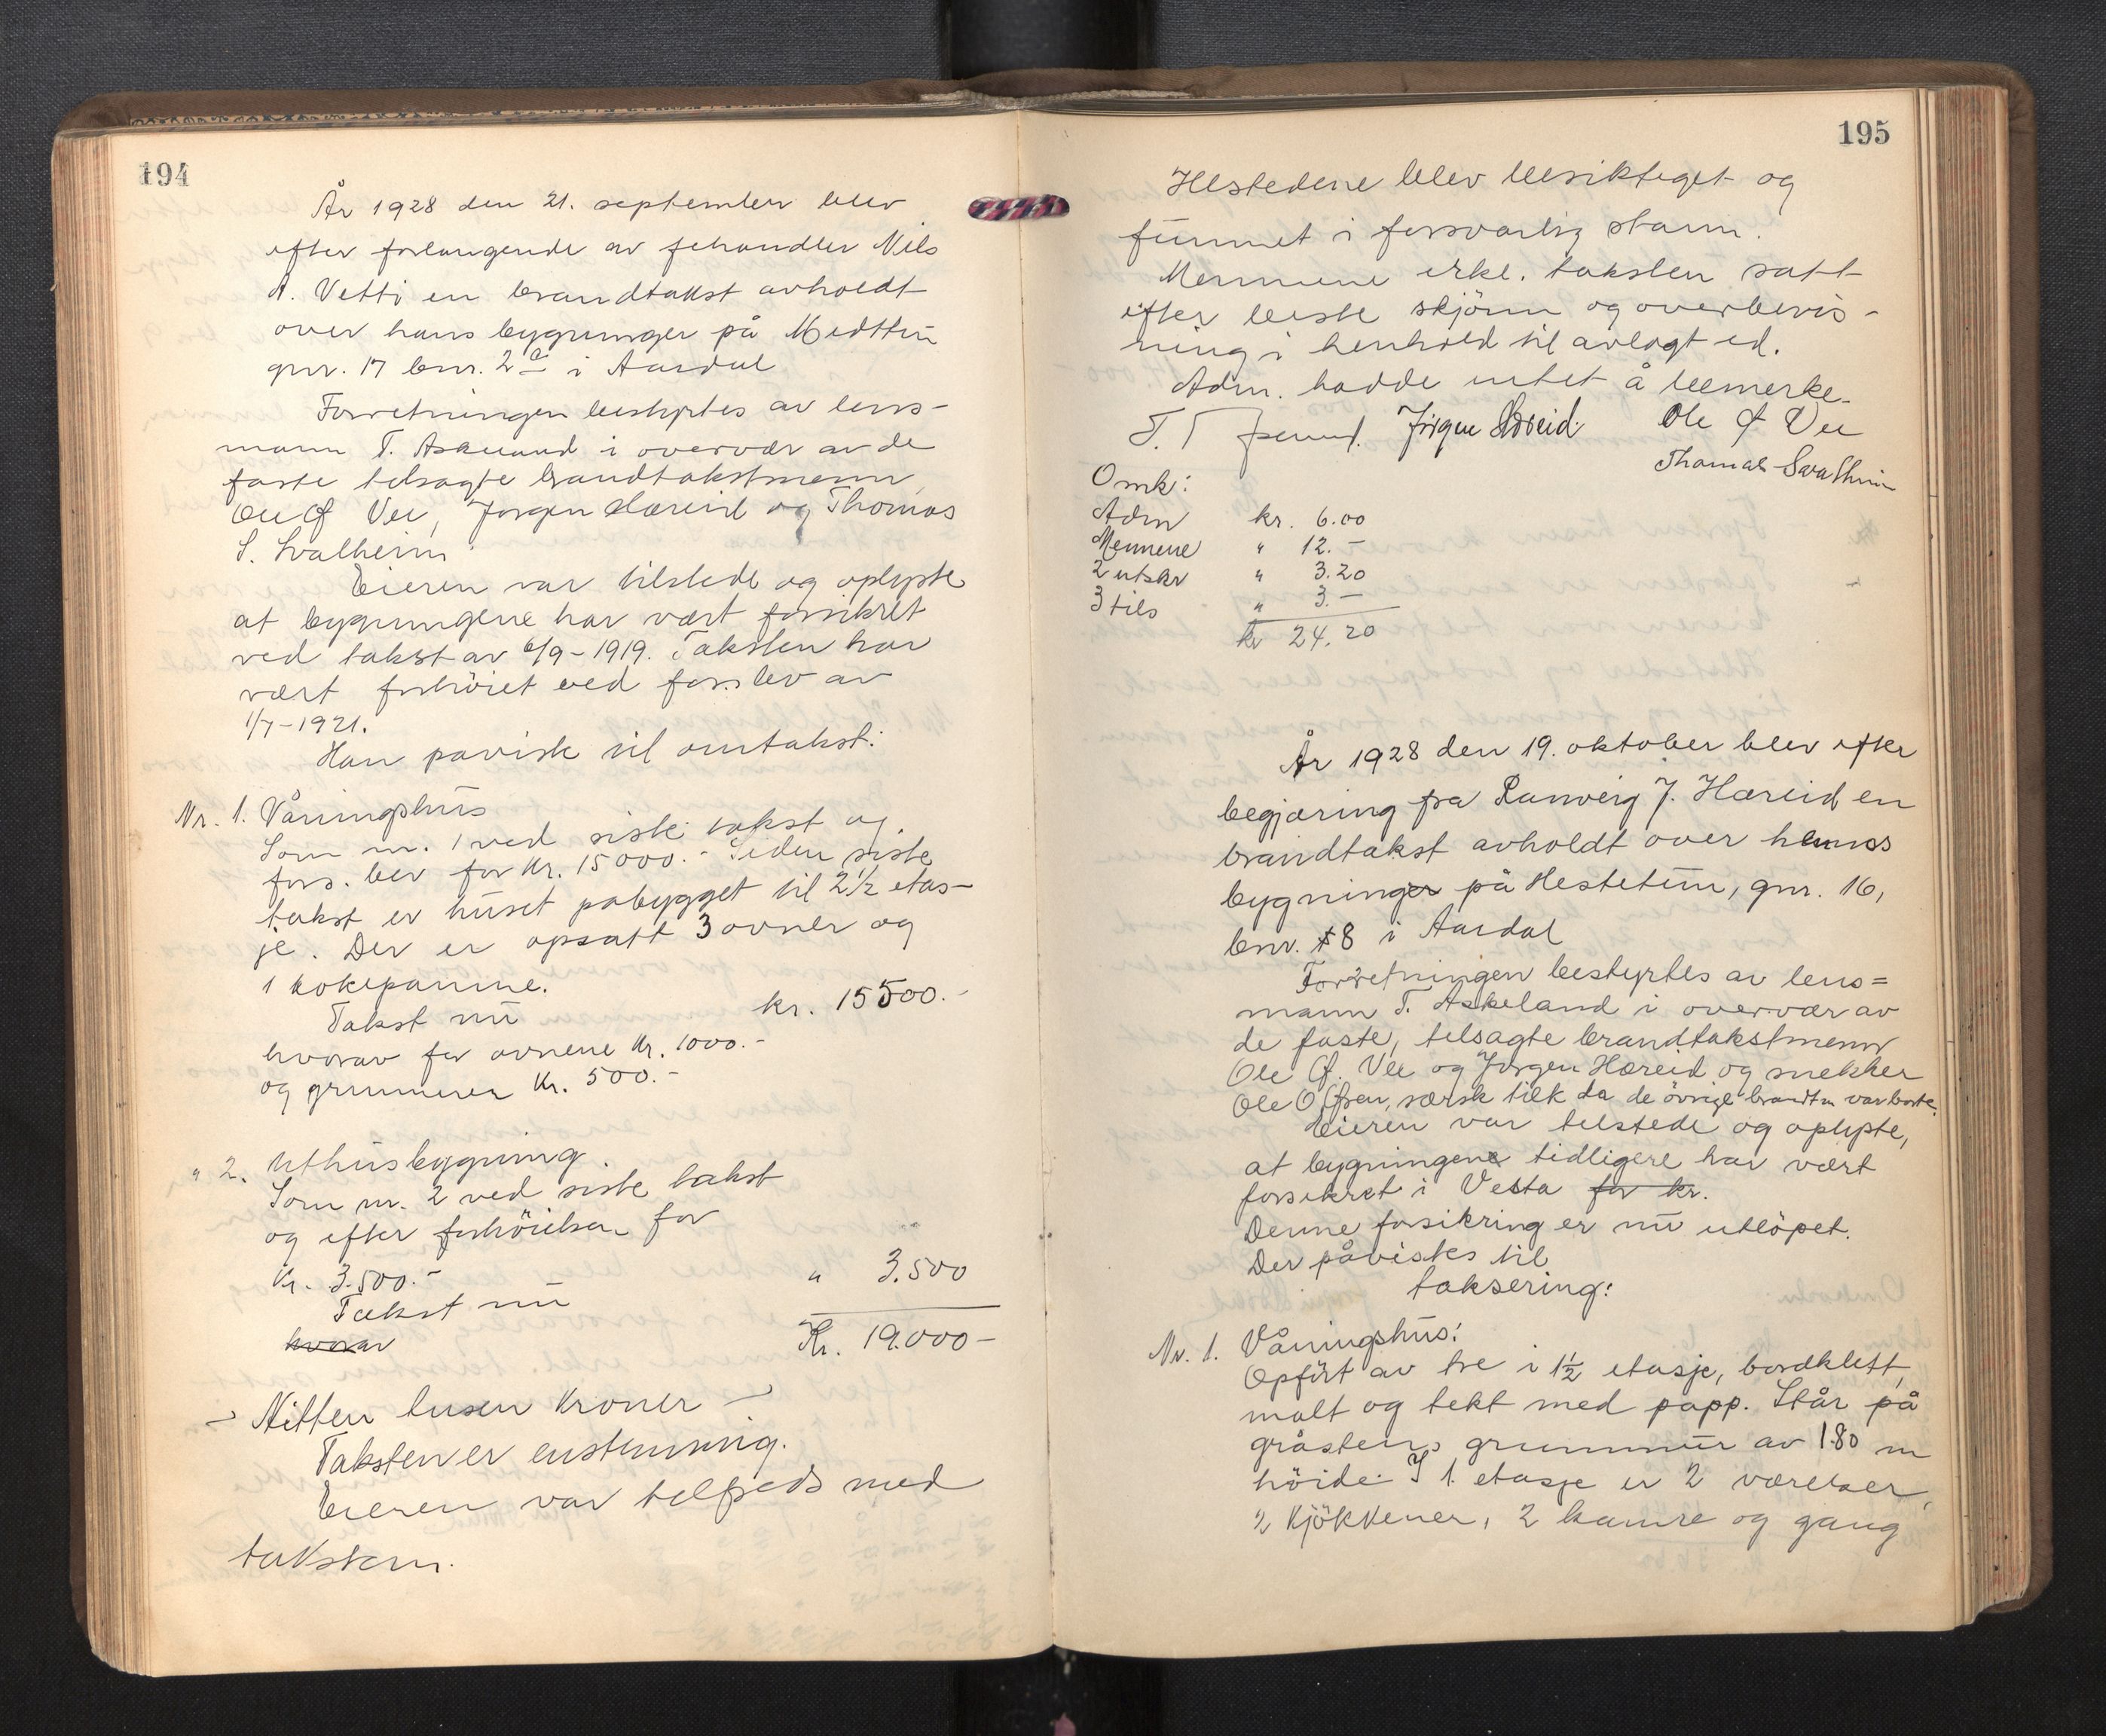 194
År 1928 den 21. september blev
efter forlangende av fehandler Nils
A. Vetti en brandtakst avholdt
over hans bygninger på Midttun
gnr. 17 bnr. 2 a i Aardal
Forretningen bestyrtes av lens-
mann T. Askeland i overvær av de
faste tilsagte brandtakstmenn,
Ole Vee, Jørgen Hæreid og Thomas
S. Svalheim.
Eieren var tilstede og oplyste
at bygningene har vært forsikret
ved takst av 6/9-1919. Taksten har
vært forhöiet ved fors.bev av
1/7-1921.
Han paviste til omtakst:
Nr. 1. Våningshus
Som nr. 1 ved siste takst og
fors. bev for kr. 15000.- Siden siste
takst er huset pabygget til 2 1/2 etas-
je. Der er opsatt 3 ovner og
1 kokepanne.
Takst nu kr. 15500.-
hvorav for ovnene kr. 1000.-
og grunnmuren kr. 500.-
" 2. Uthusbygning.
Som nr. 2 ved siste takst
og efter forhöielsen for
kr. 3.500.- " 3.500
Takst nu
hvorav Kr. 19.000-
- Nitten tusen kroner -
Taksten er enstemmig.
Eieren var tilfreds med
taksten.
195
Ildstedene blev besiktiget og
funnet i forsvarlig stann.
Mennene erkl. taksten satt
efter beste skjönn og overbevis-
ning i henhold til avlagt ed.
Adm. hadde intet å bemerke.
Jörgen Hæreid. Ole Vee
Thomas Svalheim
Omk:
Adm kr. 6.00
Mennene " 12.-
2 utskr " 3.20
3 tils " 3.-
kr 24.20
År 1928 den 19. oktober blev efter
begjæring fra Ranveig J. Hæreid en
brandtakst avholdt over hennes
bygninger på Hestetun, gnr. 16,
bnr. 8 i Aardal
Forretningen bestyrtes av lens=
mann T. Askeland i overvær av
de faste, tilsagte brandtakstmenn
Ole Vee og Jørgen Hæreid og snekker
Ole Ofsen, særsk tilk da de övrige brandtm var borte.
Eieren var tilstede og oplyste,
at bygningene tidligere har vært
forsikret i Vesta for kr.
Denne forsikring er nu utlöpet.
Der påvistes til
taksering:
Nr. 1. Våningshus:
Opfört av tre i 1 1/2 etasje, bordklett,
malt og tekt med papp. Står på
gråstens grunnmur av 1.80 m
höide. I 1. etasje er 2 værelser,
2 kjökkener, 2 kamre og gang